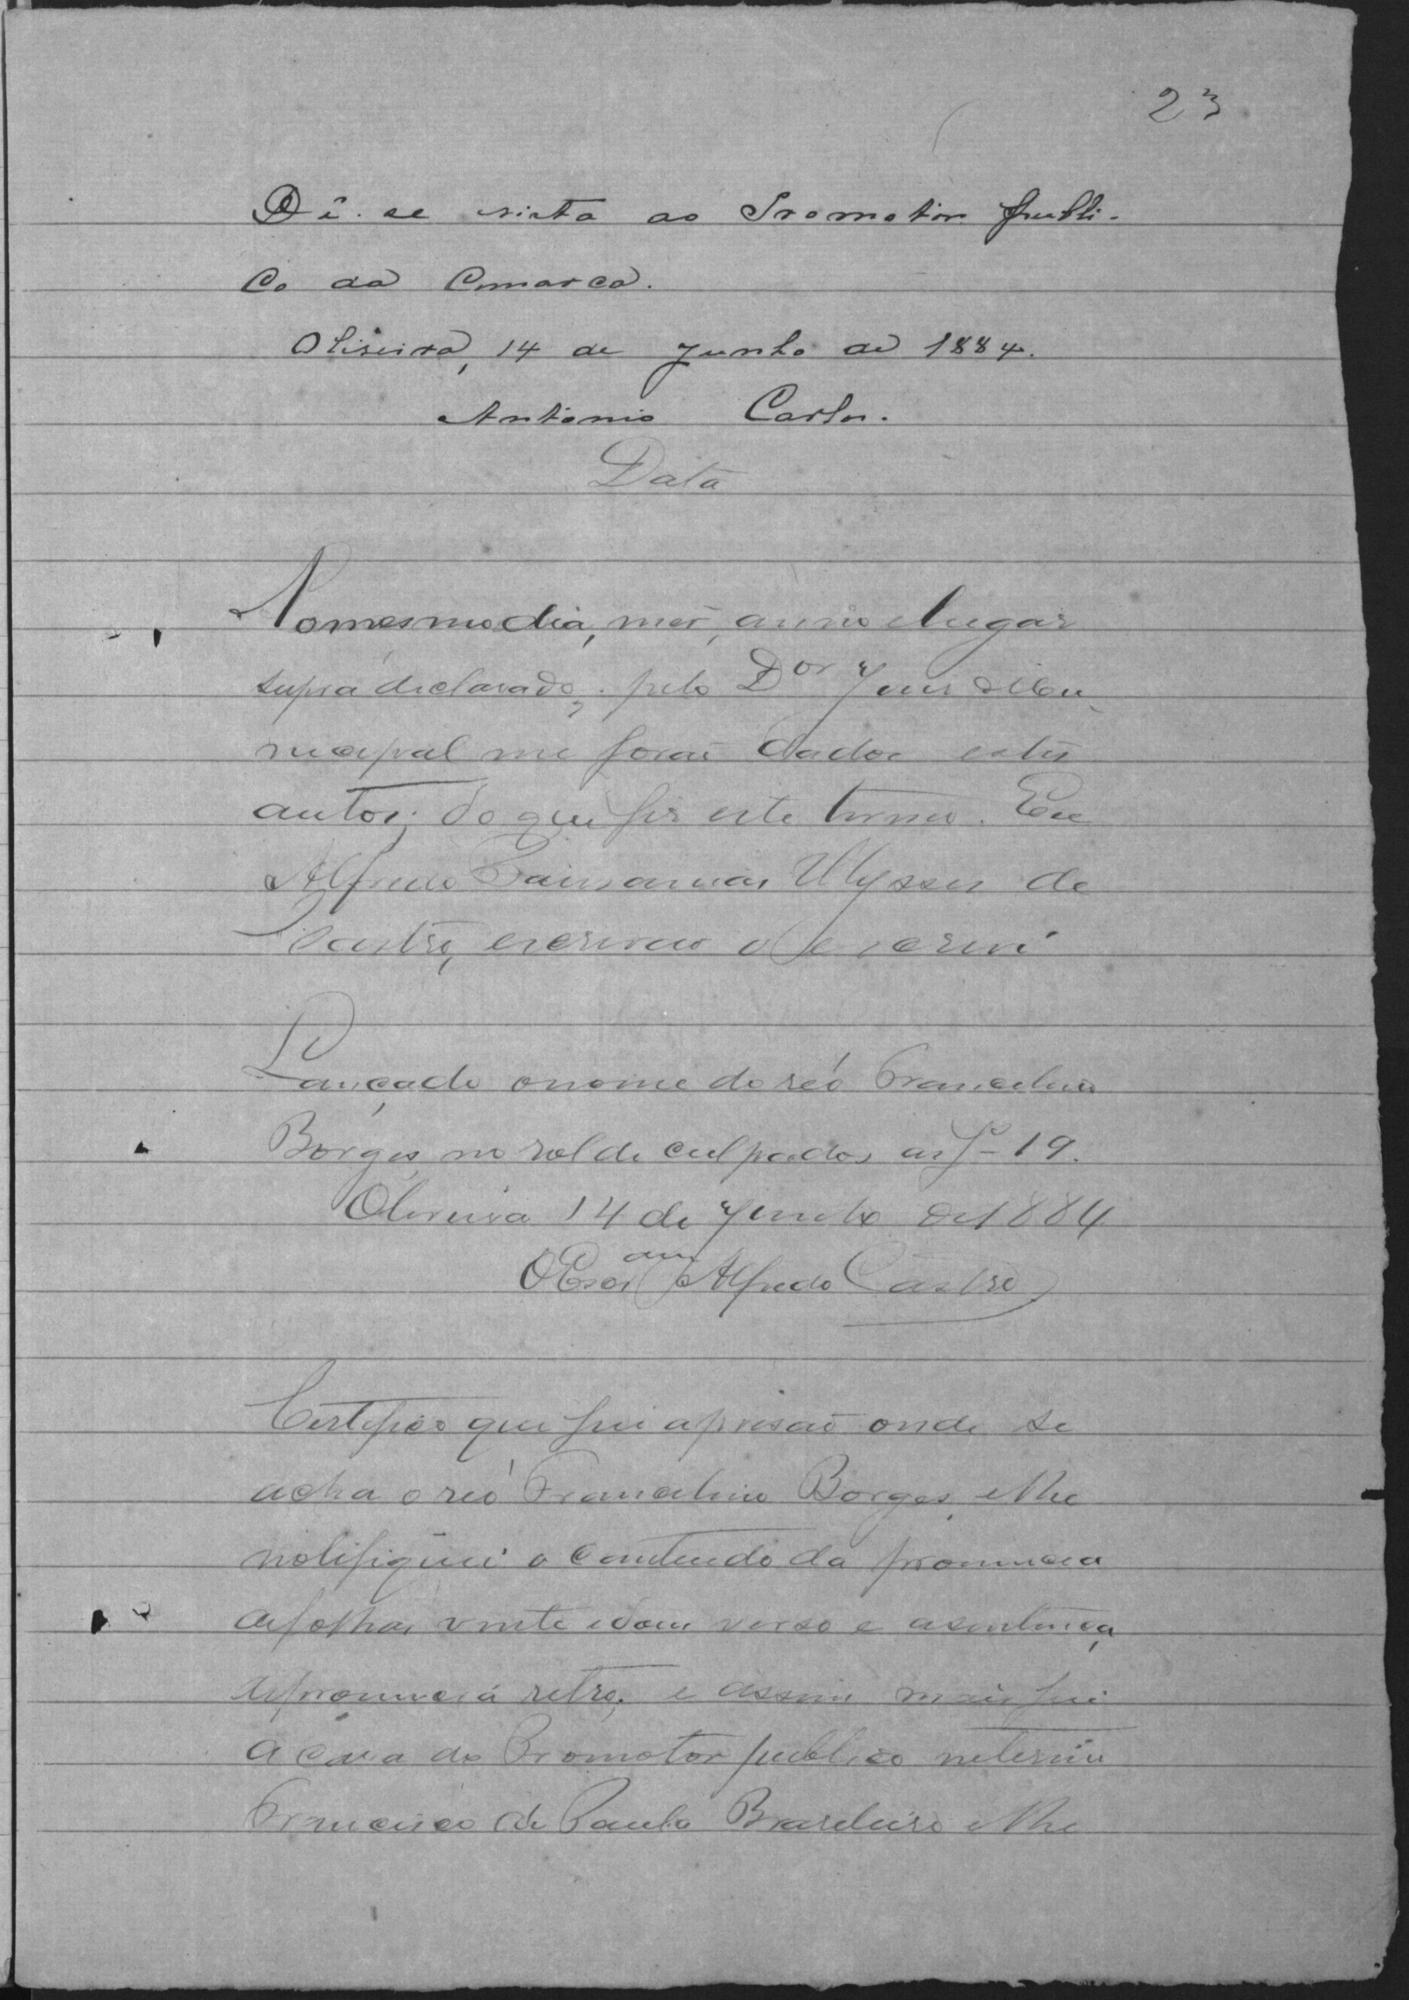 23
Dê-se vista ao Promotor publi-
co da Comarca.
Oliveira, 14 de Junho de 1884.
Antonio Carlos.
Data
No mesmo dia, mez, anno e lugar
supra declarado, pelo Dor Juiz Mu-
nicipal me forão dados estes
autos; do que fiz este termo. Eu
Alfredo Ulysses de
Castro, escrivão o escrevi
Lançado o nome do réo Francelino
Borges no rol de culpados as fs 19.
Oliveira 14 de Junho de 1884
O Escram Alfredo Castro
Certifico que fui a prisão onde se
acha o réo Francelino Borges, e lhe
notifiquei o conteudo da pronuncia
de folhas vinte e dous verso e a sentença
de pronuncia retro, e assim mais fui
a casa do Promotor publico interino
Francisco de Paula Brasileiro e lhe